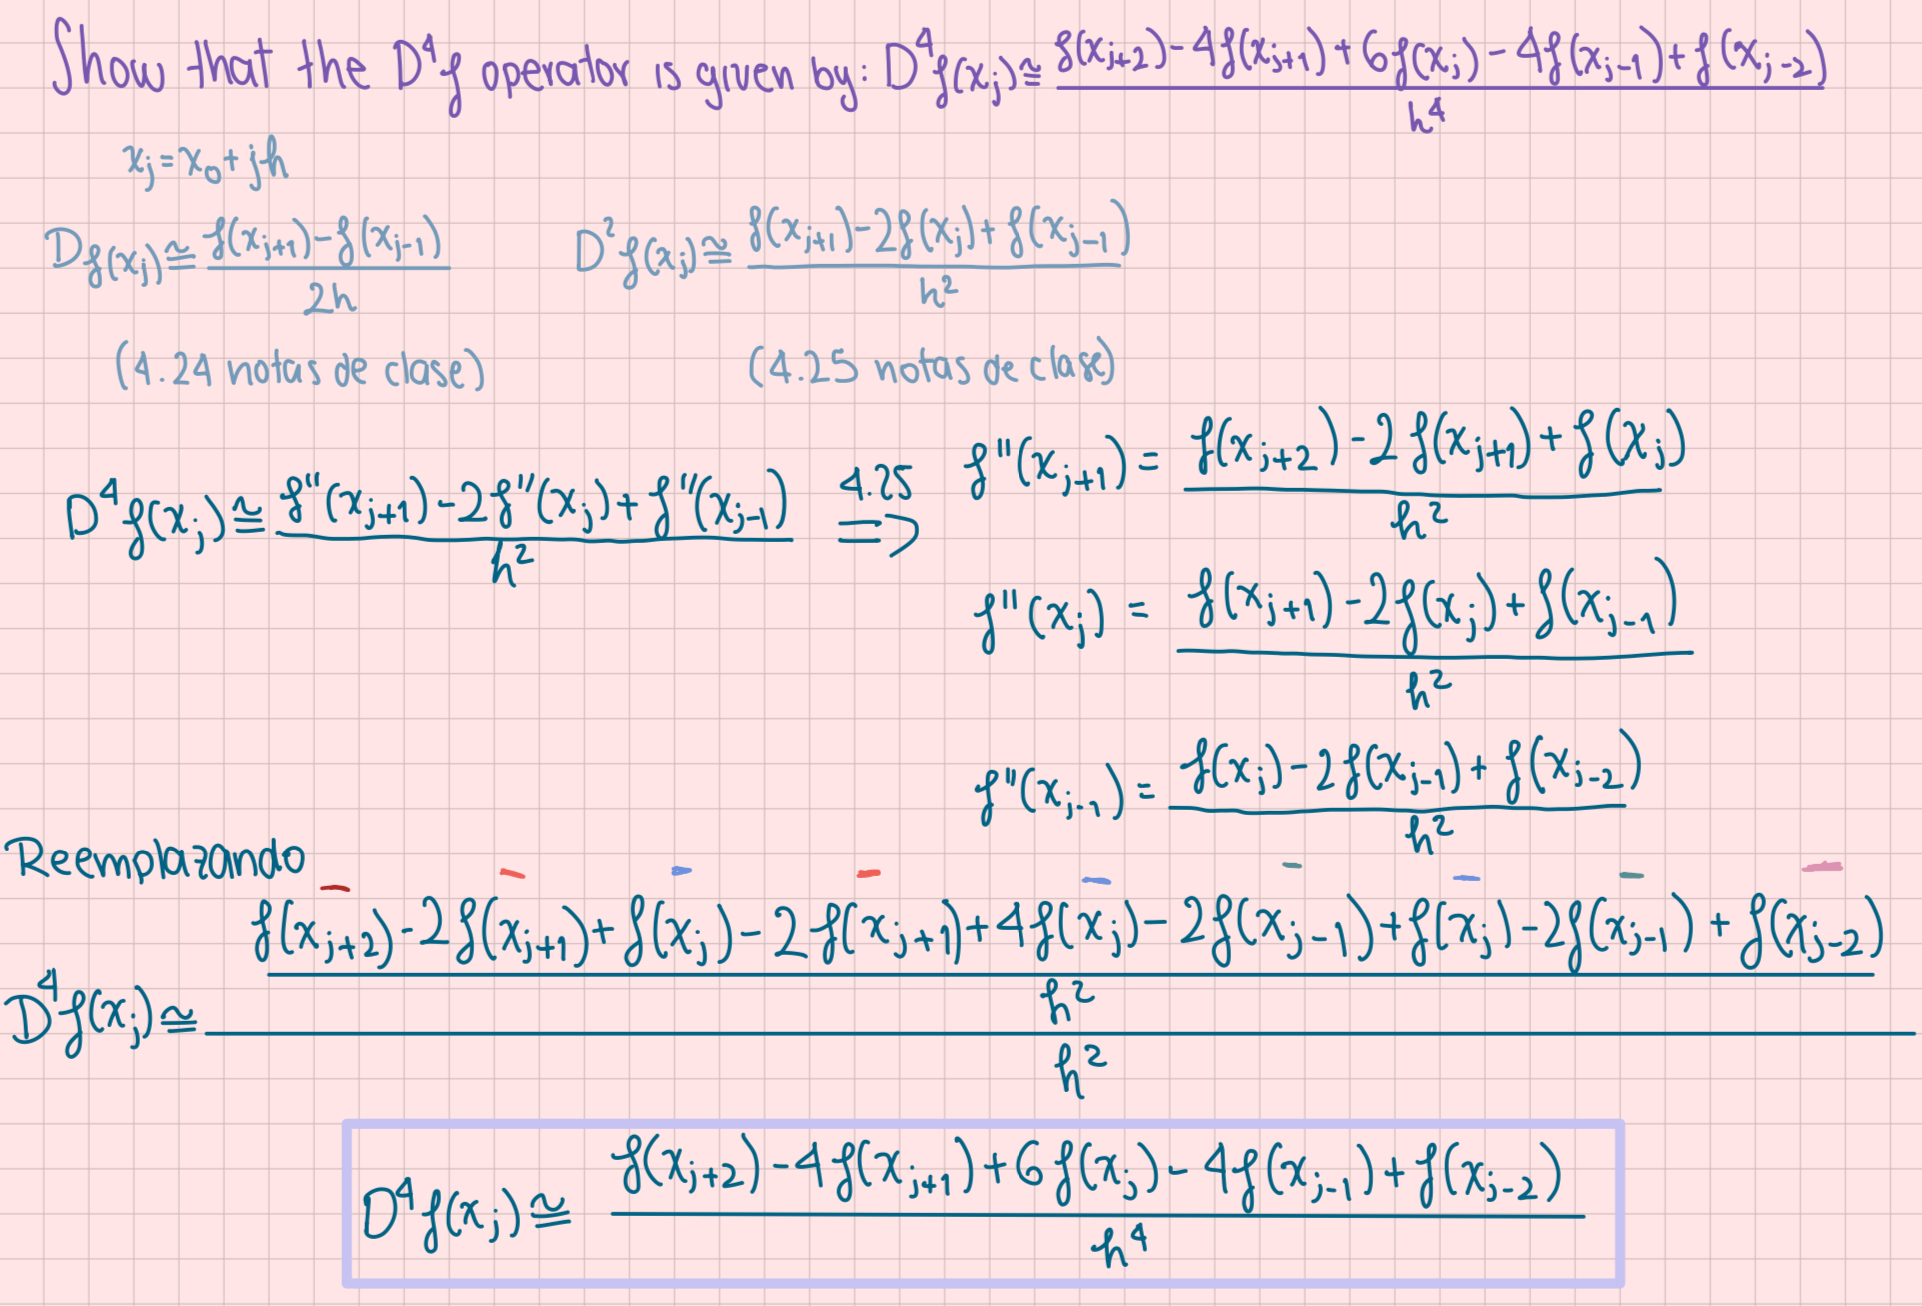 Show that the D⁴f operator is given by: D⁴f(x_j) ≅ (f(x_{j+2}) - 4f(x_{j+1}) + 6f(x_j) - 4f(x_{j-1}) + f(x_{j-2})) / h⁴
x_j = x_0 + jh
Df(x_j) ≅ (f(x_{j+1}) - f(x_{j-1})) / 2h    D²f(x_j) ≅ (f(x_{j+1}) - 2f(x_j) + f(x_{j-1})) / h²
(4.24 notas de clase)    (4.25 notas de clase)
D⁴f(x_j) ≅ (f''(x_{j+1}) - 2f''(x_j) + f''(x_{j-1})) / h²  4.25 ⇒  f''(x_{j+1}) = (f(x_{j+2}) - 2f(x_{j+1}) + f(x_j)) / h²
f''(x_j) = (f(x_{j+1}) - 2f(x_j) + f(x_{j-1})) / h²
f''(x_{j-1}) = (f(x_j) - 2f(x_{j-1}) + f(x_{j-2})) / h²
Reemplazando
D⁴f(x_j) ≅ ((f(x_{j+2}) - 2f(x_{j+1}) + f(x_j) - 2f(x_{j+1}) + 4f(x_j) - 2f(x_{j-1}) + f(x_j) - 2f(x_{j-1}) + f(x_{j-2})) / h²) / h²
D⁴f(x_j) ≅ (f(x_{j+2}) - 4f(x_{j+1}) + 6f(x_j) - 4f(x_{j-1}) + f(x_{j-2})) / h⁴